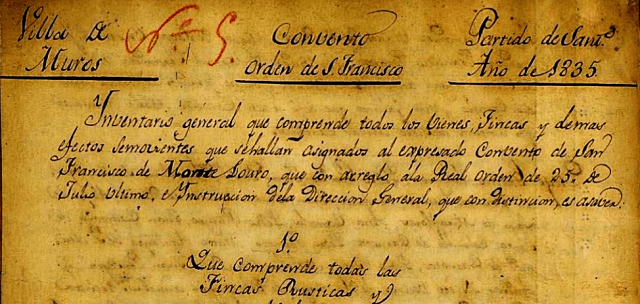 Villa de Muros
Nº 5.
Convento
Orden de S. Francisco
Partido de Santº
Año de 1835.
Ynventario general que comprende todos los vienes, Fincas y demas
efectos semovientes que se hallan asignados al expresado Convento de San
Francisco de Monte Louro, que con arreglo ala Real orden de 25. de
Julio ultimo, e Ynstrucion dela Direccion General, que con distincion, es asaver:
1º
Que comprende todas las
Fincas Rusticas y